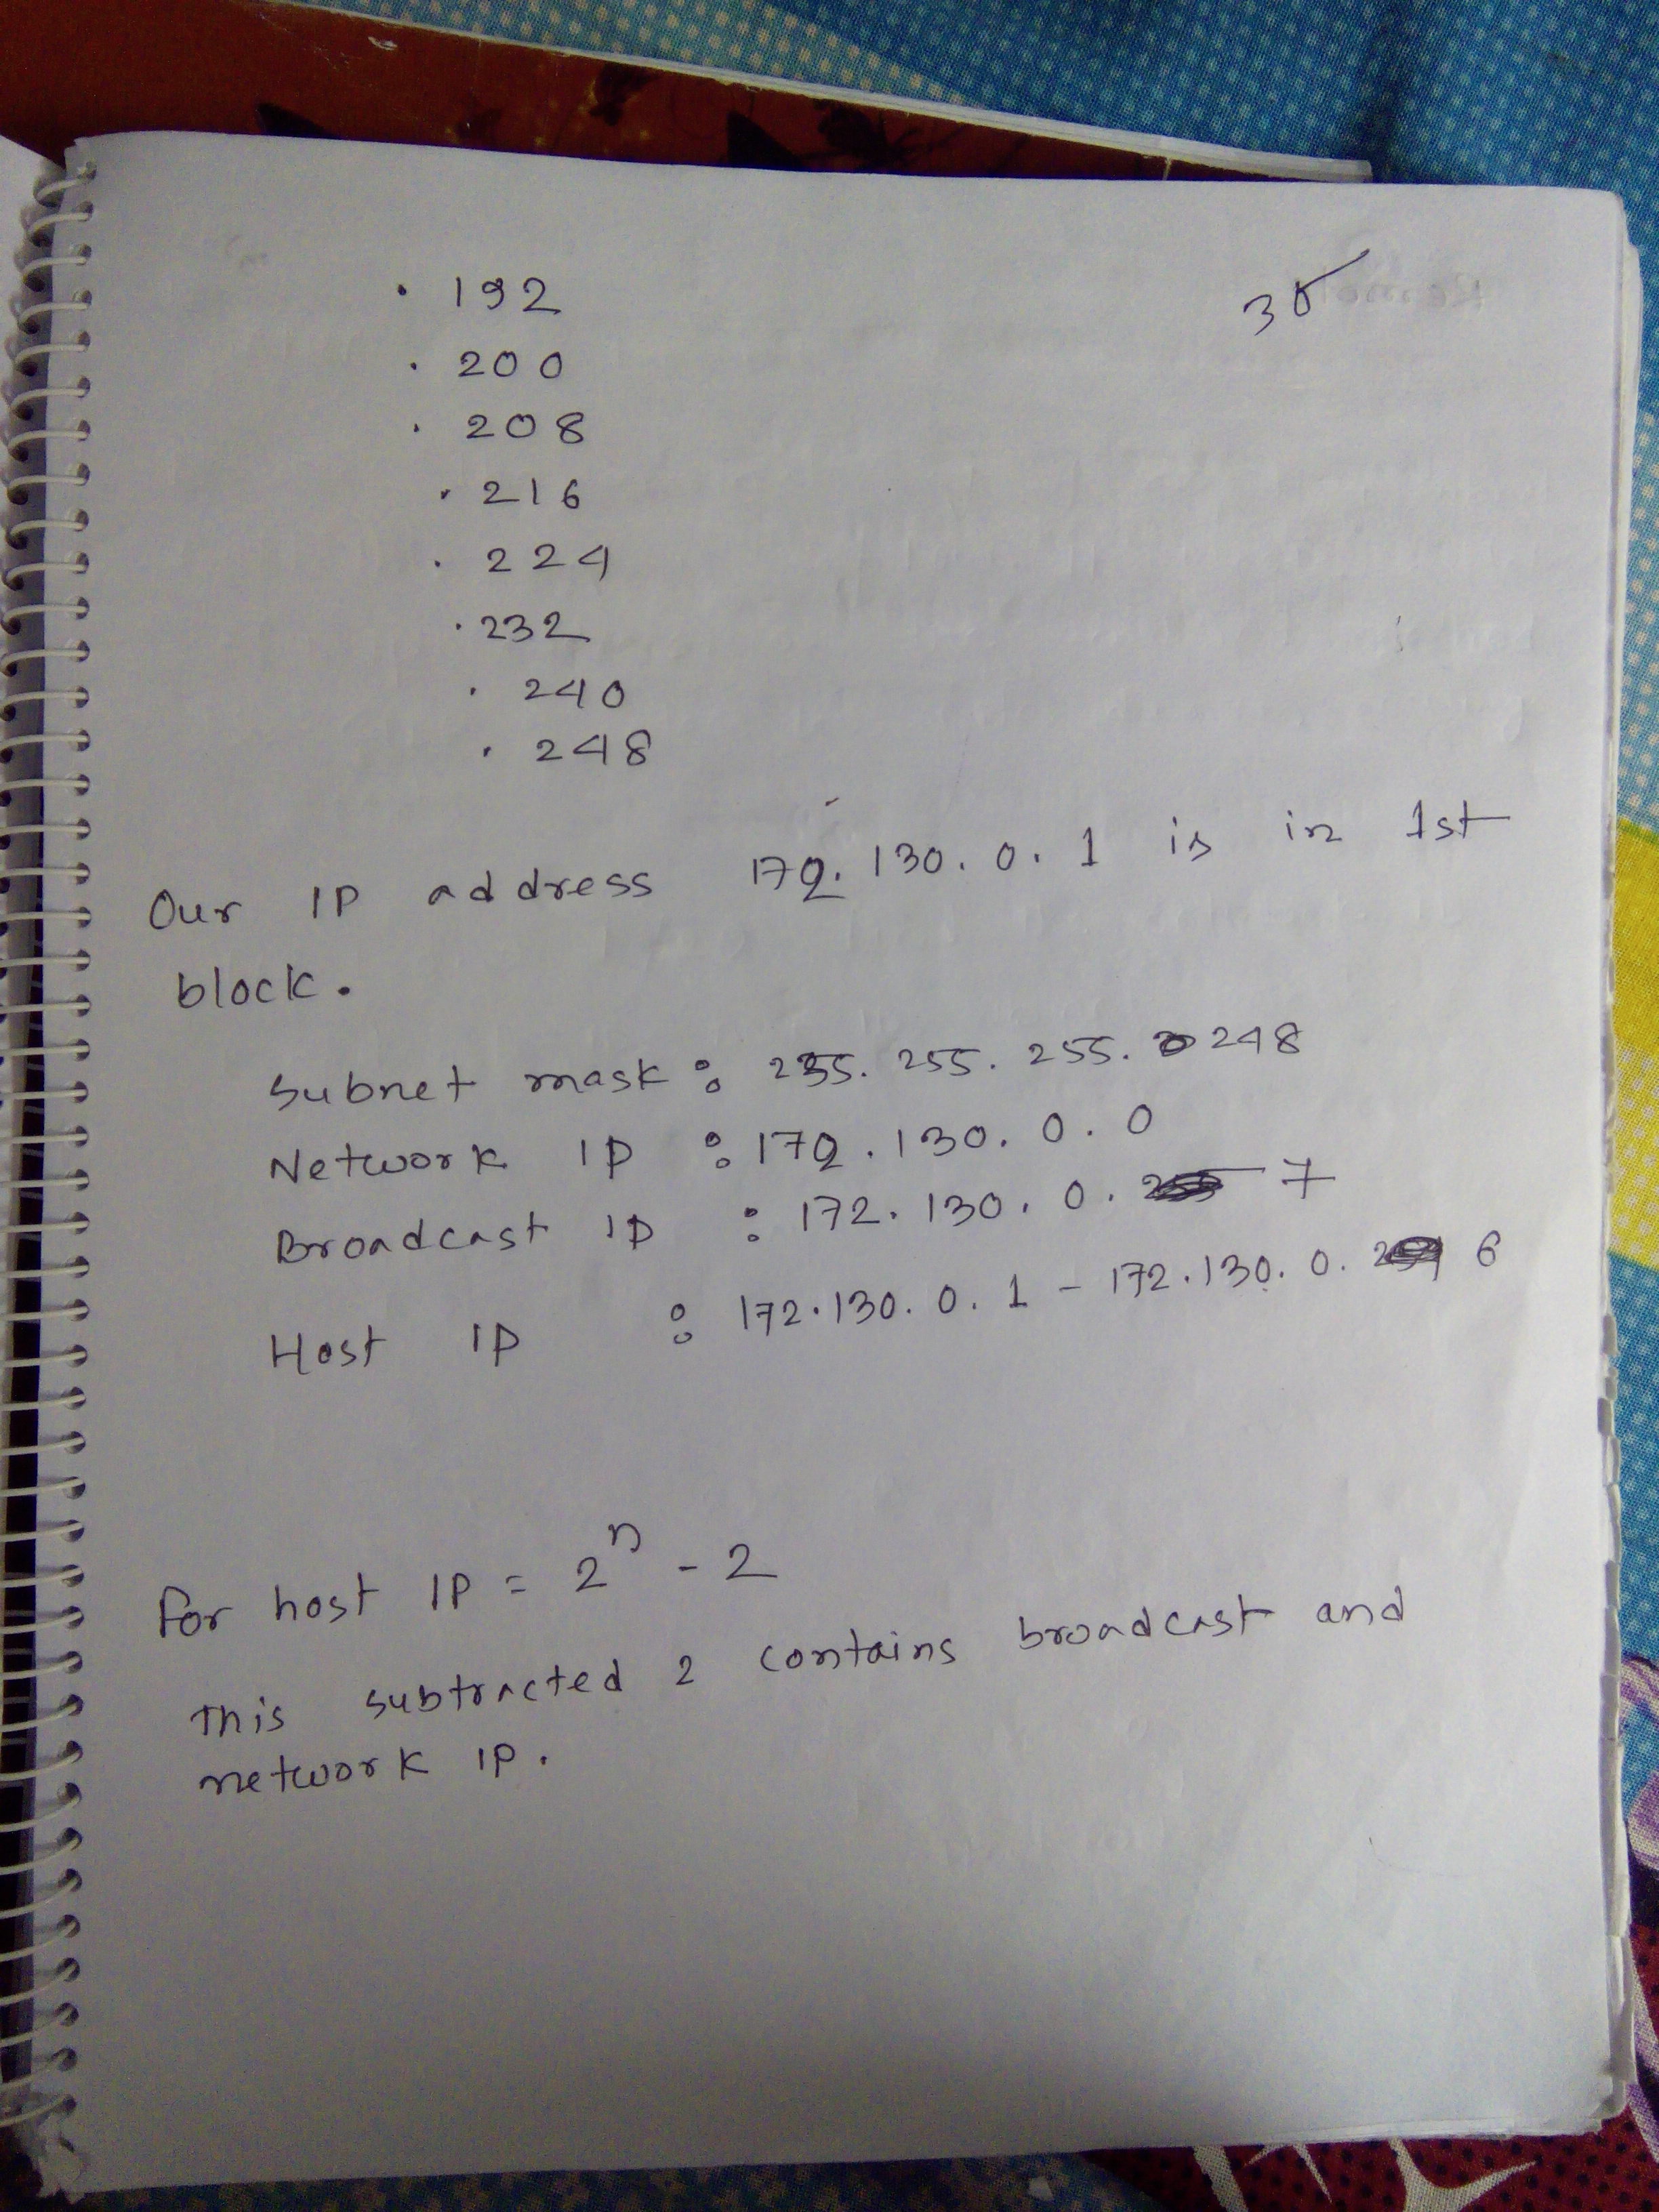 35
. 192
. 200
. 208
. 216
. 224
. 232
. 240
. 248
Our IP address 172.130.0.1 is in 1st
block.
Subnet mask : 255.255.255.248
Network IP : 172.130.0.0
Broadcast IP : 172.130.0. 7
Host IP : 172.130.0.1 - 172.130.0. 6
For host IP = 2^n - 2
This subtracted 2 contains broadcast and
network IP.